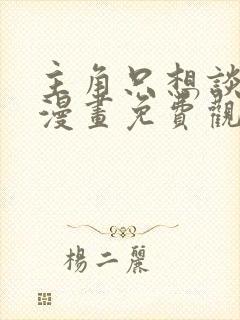 主角只想談
漫畫免費觀
楊二麗